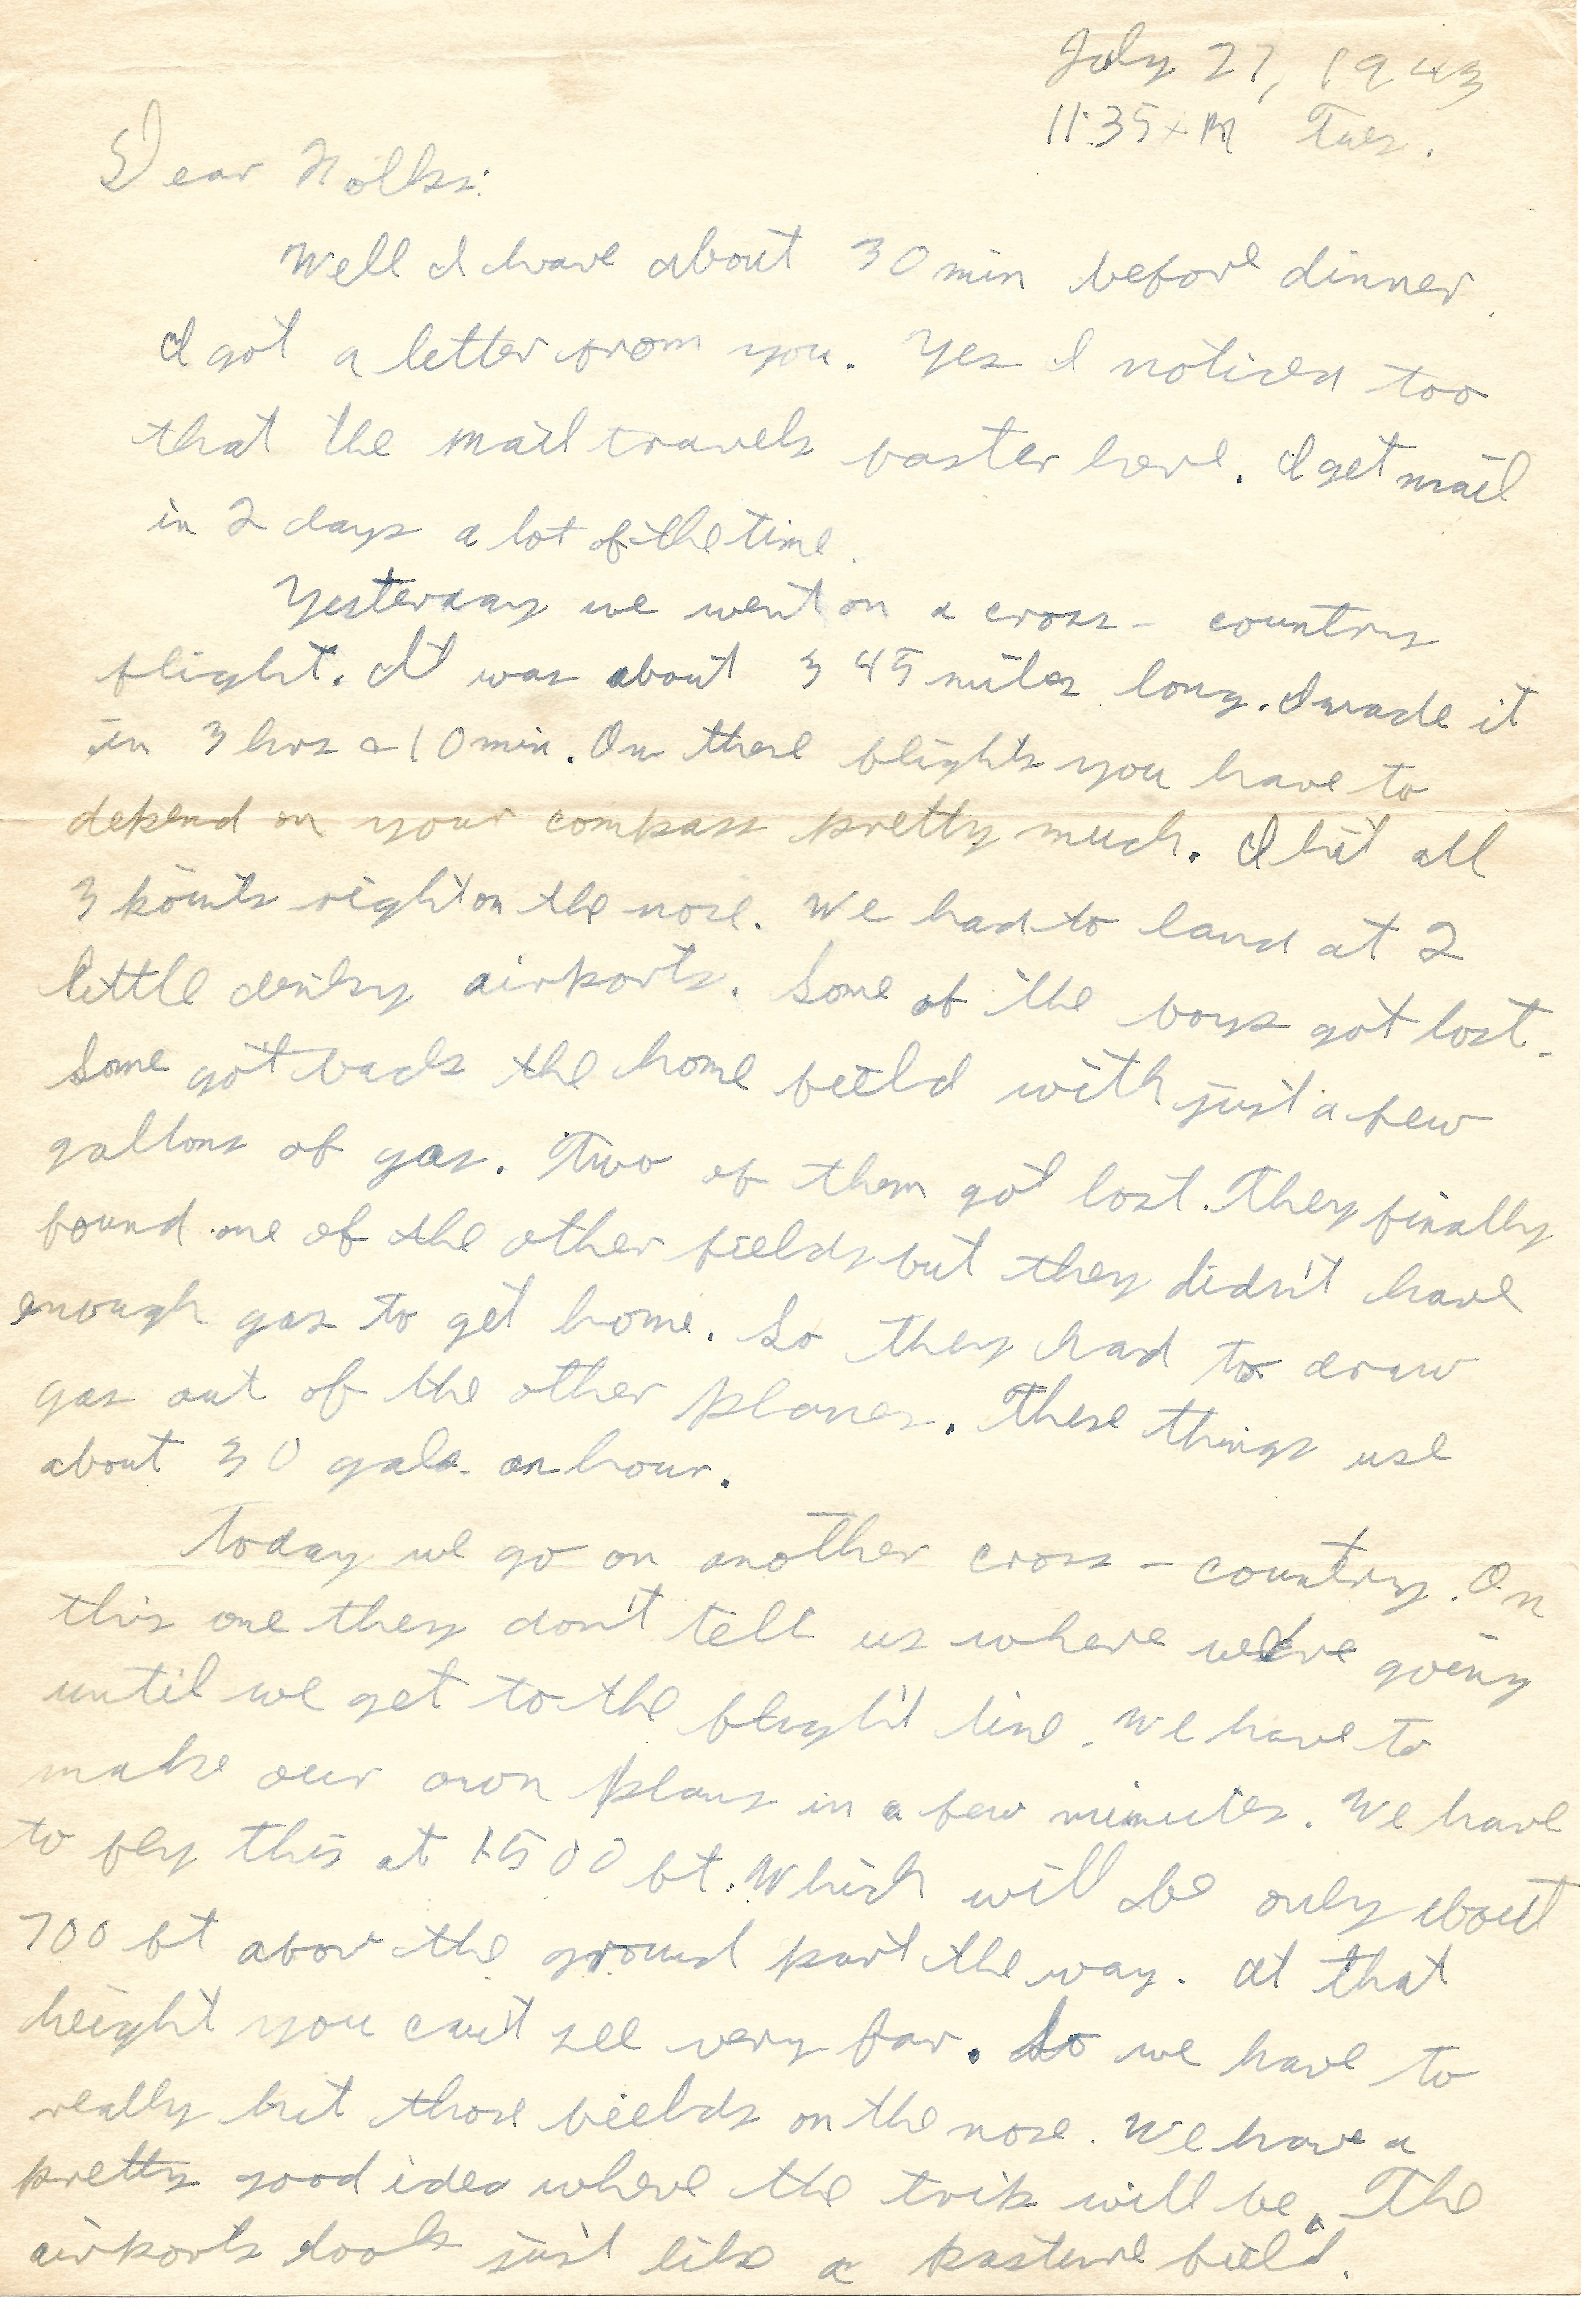 July 27, 1943
11:35 AM Tues.
Dear Folks:
Well I have about 30 min before dinner.
I got a letter from you. Yes I noticed too
that the mail travels faster here. I get mail
in 2 days a lot of the time.
Yesterday we went on a cross-country
flight. It was about 345 miles long. I made it
in 3 hrs & 10 min. On these flights you have to
depend on your compass pretty much. I hit all
3 points right on the nose. We had to land at 2
little dinky airports. Some of the boys got lost.
Some got back the home field with just a few
gallons of gas. Two of them got lost. They finally
found one of the other fields but they didn't have
enough gas to get home. So they had to draw
gas out of the other planes. These things use
about 30 gals. an hour.
Today we go on another cross-country. On
this one they don't tell us where we're going
until we get to the flight line. We have to
make our own plans in a few minutes. We have
to fly this at 1500 ft. Which will be only about
700 ft above the ground part the way. At that
height you can't see very far. So we have to
really hit those fields on the nose. We have a
pretty good idea where the trip will be. The
airports look just like a pasture field.